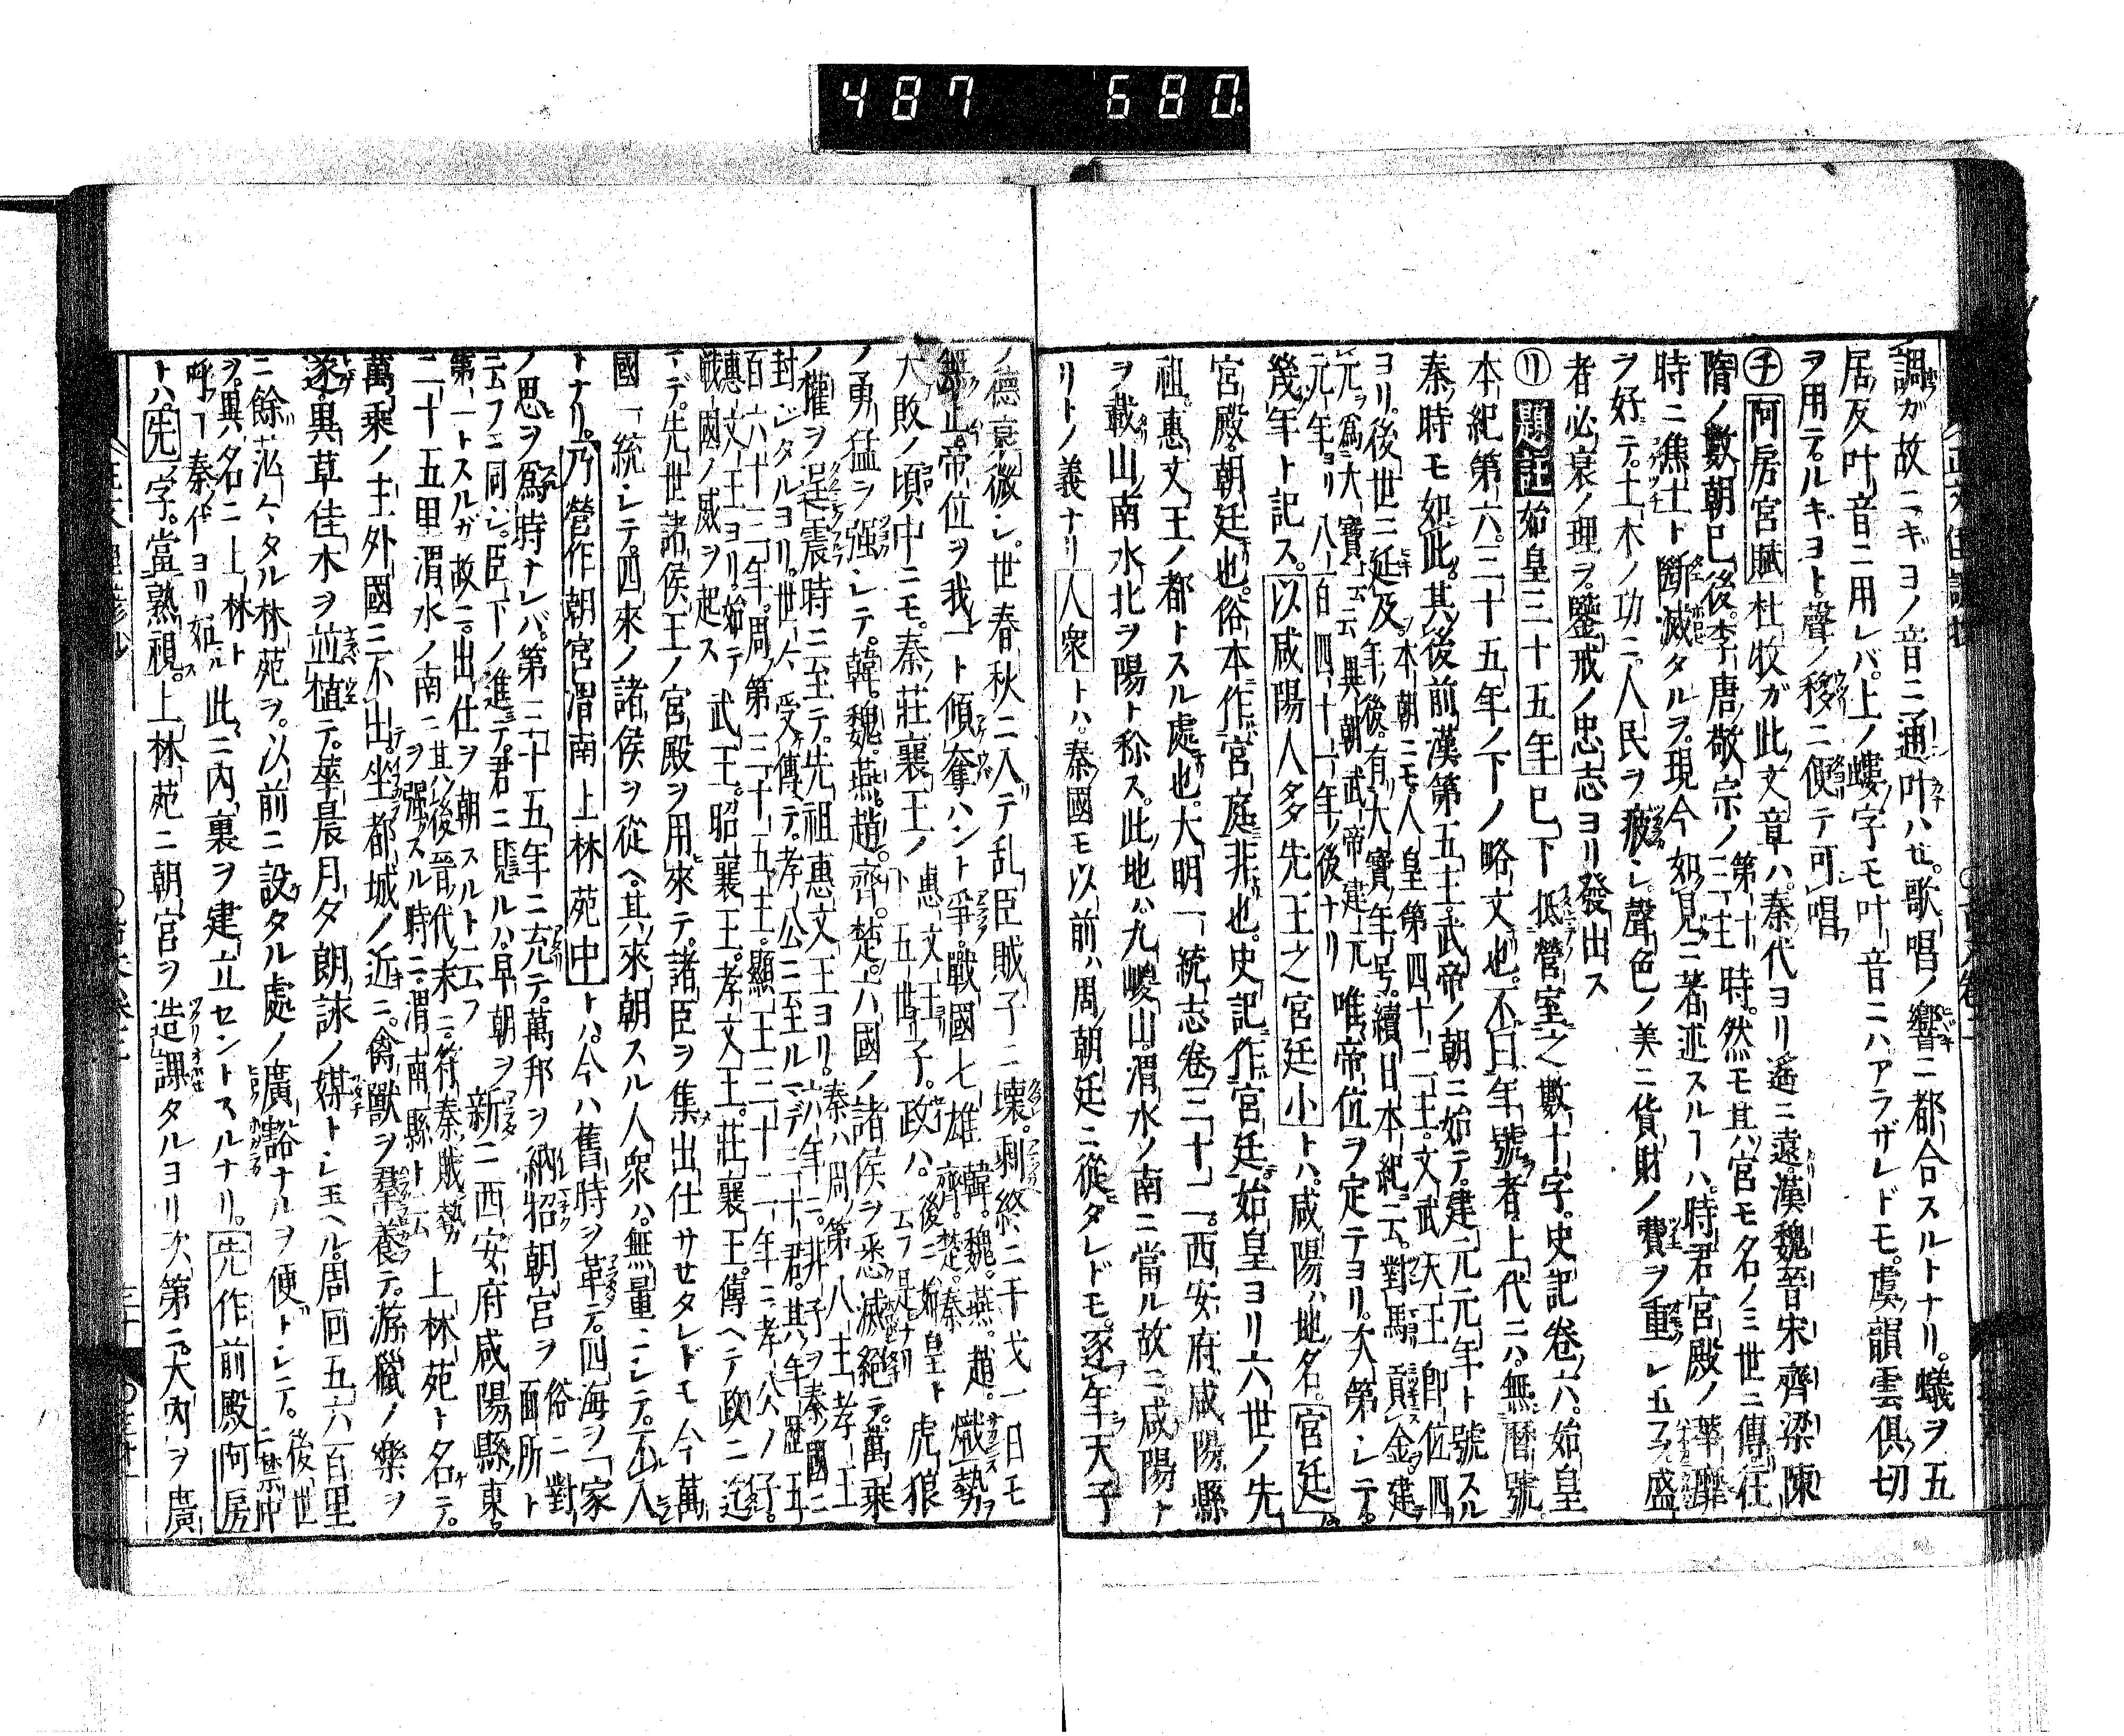 487 680.
調ガ故ニギヨノ音ニ通叶ハせ。歌唱ノ響ニ都合スルトナリ。蟻ヲ五
居反叶音ニ用レバ。上ノ螻字モ叶音ニハアラザレドモ。虞韻雲俱切
ヲ用テルギヨト。聲ノ移ニ便テ可唱
㋠阿房宮賦杜牧ガ此文章ハ。秦代ヨリ遙ニ遠。漢魏晉宋齊梁陳
隋ノ數朝已後。李唐敬宗ノ第十三主時。然モ其宮モ名ノミ世ニ傳往
時ニ焦土ト斷滅タルヲ。現今如見ニ著述スルヿハ。時君宮殿ノ華靡
ヲ好テ。土木ノ功ニ。人民ヲ疲シ。聲色ノ美ニ貨財ノ費ヲ重レ玉フヲ。盛
者必衰ノ理ヲ。鑒戒ノ忠志ヨリ發出ス
㋷題註始皇三十五年已下抵營室之數十字。史記卷六。始皇
本紀第六。三十五年ノ下ノ略文也。不曰年號者。上代ニハ。無曆號
秦時モ如此。其後前漢第五主武帝ノ朝ニ始テ。建元元年ト號スル
ヨリ。後世ニ延及。本朝ニモ。人皇第四十二主。文武天王卽位四
年後。有大寶年号。續日本紀ニ云。對馬貢金建
元ヲ爲大寶云云異朝武帝建元
元年ヨリ八百四十一年ノ後ナリ唯帝位ヲ定テヨリ。次第シテ。
幾年ト記ス。以咸陽人多先王之宮廷小トハ。咸陽ハ地名。宮廷ハ
宮殿。朝廷也。俗本作宮庭非也。史記作宮廷。始皇ヨリ六世ノ先
祖惠文王ノ都トスル處也。大明一統志卷三十二。西安府咸陽縣
ヲ載山南水北ヲ陽ト称ス。此地ハ。九嵕山。渭水ノ南ニ當ル故ニ咸陽ト
リトノ義ナリ人衆トハ。秦國モ以前ハ周朝廷ニ從タレドモ。逐年天子
ノ德衰微シ。世春秋ニ入テ乱臣賊子ニ壊。剰終ニ干戈一日モ
無止。帝位ヲ我一ト傾奪ハント爭。戰國七雄韓。魏。燕。趙。齊。楚。秦熾勢ヲ
大敗ノ頃中ニモ。秦莊襄王ノ惠文王ノ下五世子。政ハ。後ニ始皇ト云フ是ナリ虎狼
ノ勇猛ヲ强シテ。韓。魏。燕。趙。齊。楚。六國ノ諸侯ヲ悉滅絕テ。萬乗
ノ權ヲ逞震時ニ至テ。先祖惠文王ヨリ。秦ハ周ノ第八主孝王
六年ニ。非子ヲ秦國ニ
封ジタルヨリ。世々受傳テ。孝公ニ至ルマデ三十君。其年歷五
百六十三年。周ノ第三十五主。顯王三十二年ニ。孝公ノ仔。
惠文王ヨリ。始テ
戰國ノ威ヲ起ス武王。昭襄王。孝文王。莊襄王。傳ヘテ政ニ迄
マデ。先世諸侯王ノ宮殿ヲ用來テ。諸臣ヲ集出仕サせタレドモ今萬
國一統シテ。四來ノ諸侯ヲ從ヘ。其來朝スル人衆ハ。無量ニシテ。不以入
トナリ。乃營作朝宮渭南上林苑中トハ。今ハ舊時ヲ革テ。四海ヲ一家
ノ思ヲ爲時ナレバ。第三十五年ニ充テ。萬邦ヲ納招朝宮ヲ俗ニ對面所ト
云フニ同シ。臣下ノ進テ。君ニ謁ルハ。早朝ヲ
第一トスルガ故ニ。出仕ヲ朝スルト云フ新ニ西安府咸陽縣ノ東。
二十五里渭水ノ南ニ其ハ後晉代ノ末ニ。符秦賊勢
ヲ强クスル時ニ。渭南縣ト云上林苑ト名テ。
萬乘ノ主外國ニ不出。坐都城ノ近ニ。禽獸ヲ羣養テ。游獵ノ樂ヲ
遂。異草佳木ヲ並植テ。華晨月夕朗詠ノ媒トシ玉ヘル。周回五六百里
ニ餘汎々タル林苑ヲ。以前ニ設タル處ノ廣豁ナルヲ便トシテ。後世ニ禁中
ヲ。異名ニ上林ト
呼フヿ秦ノ代ヨリ如ル此ニ內裏ヲ建立セントスルナリ。先作前殿阿房
トハ。先字。當熟視。上林苑ニ朝宮ヲ造課タルヨリ次第ニ。大內ヲ廣